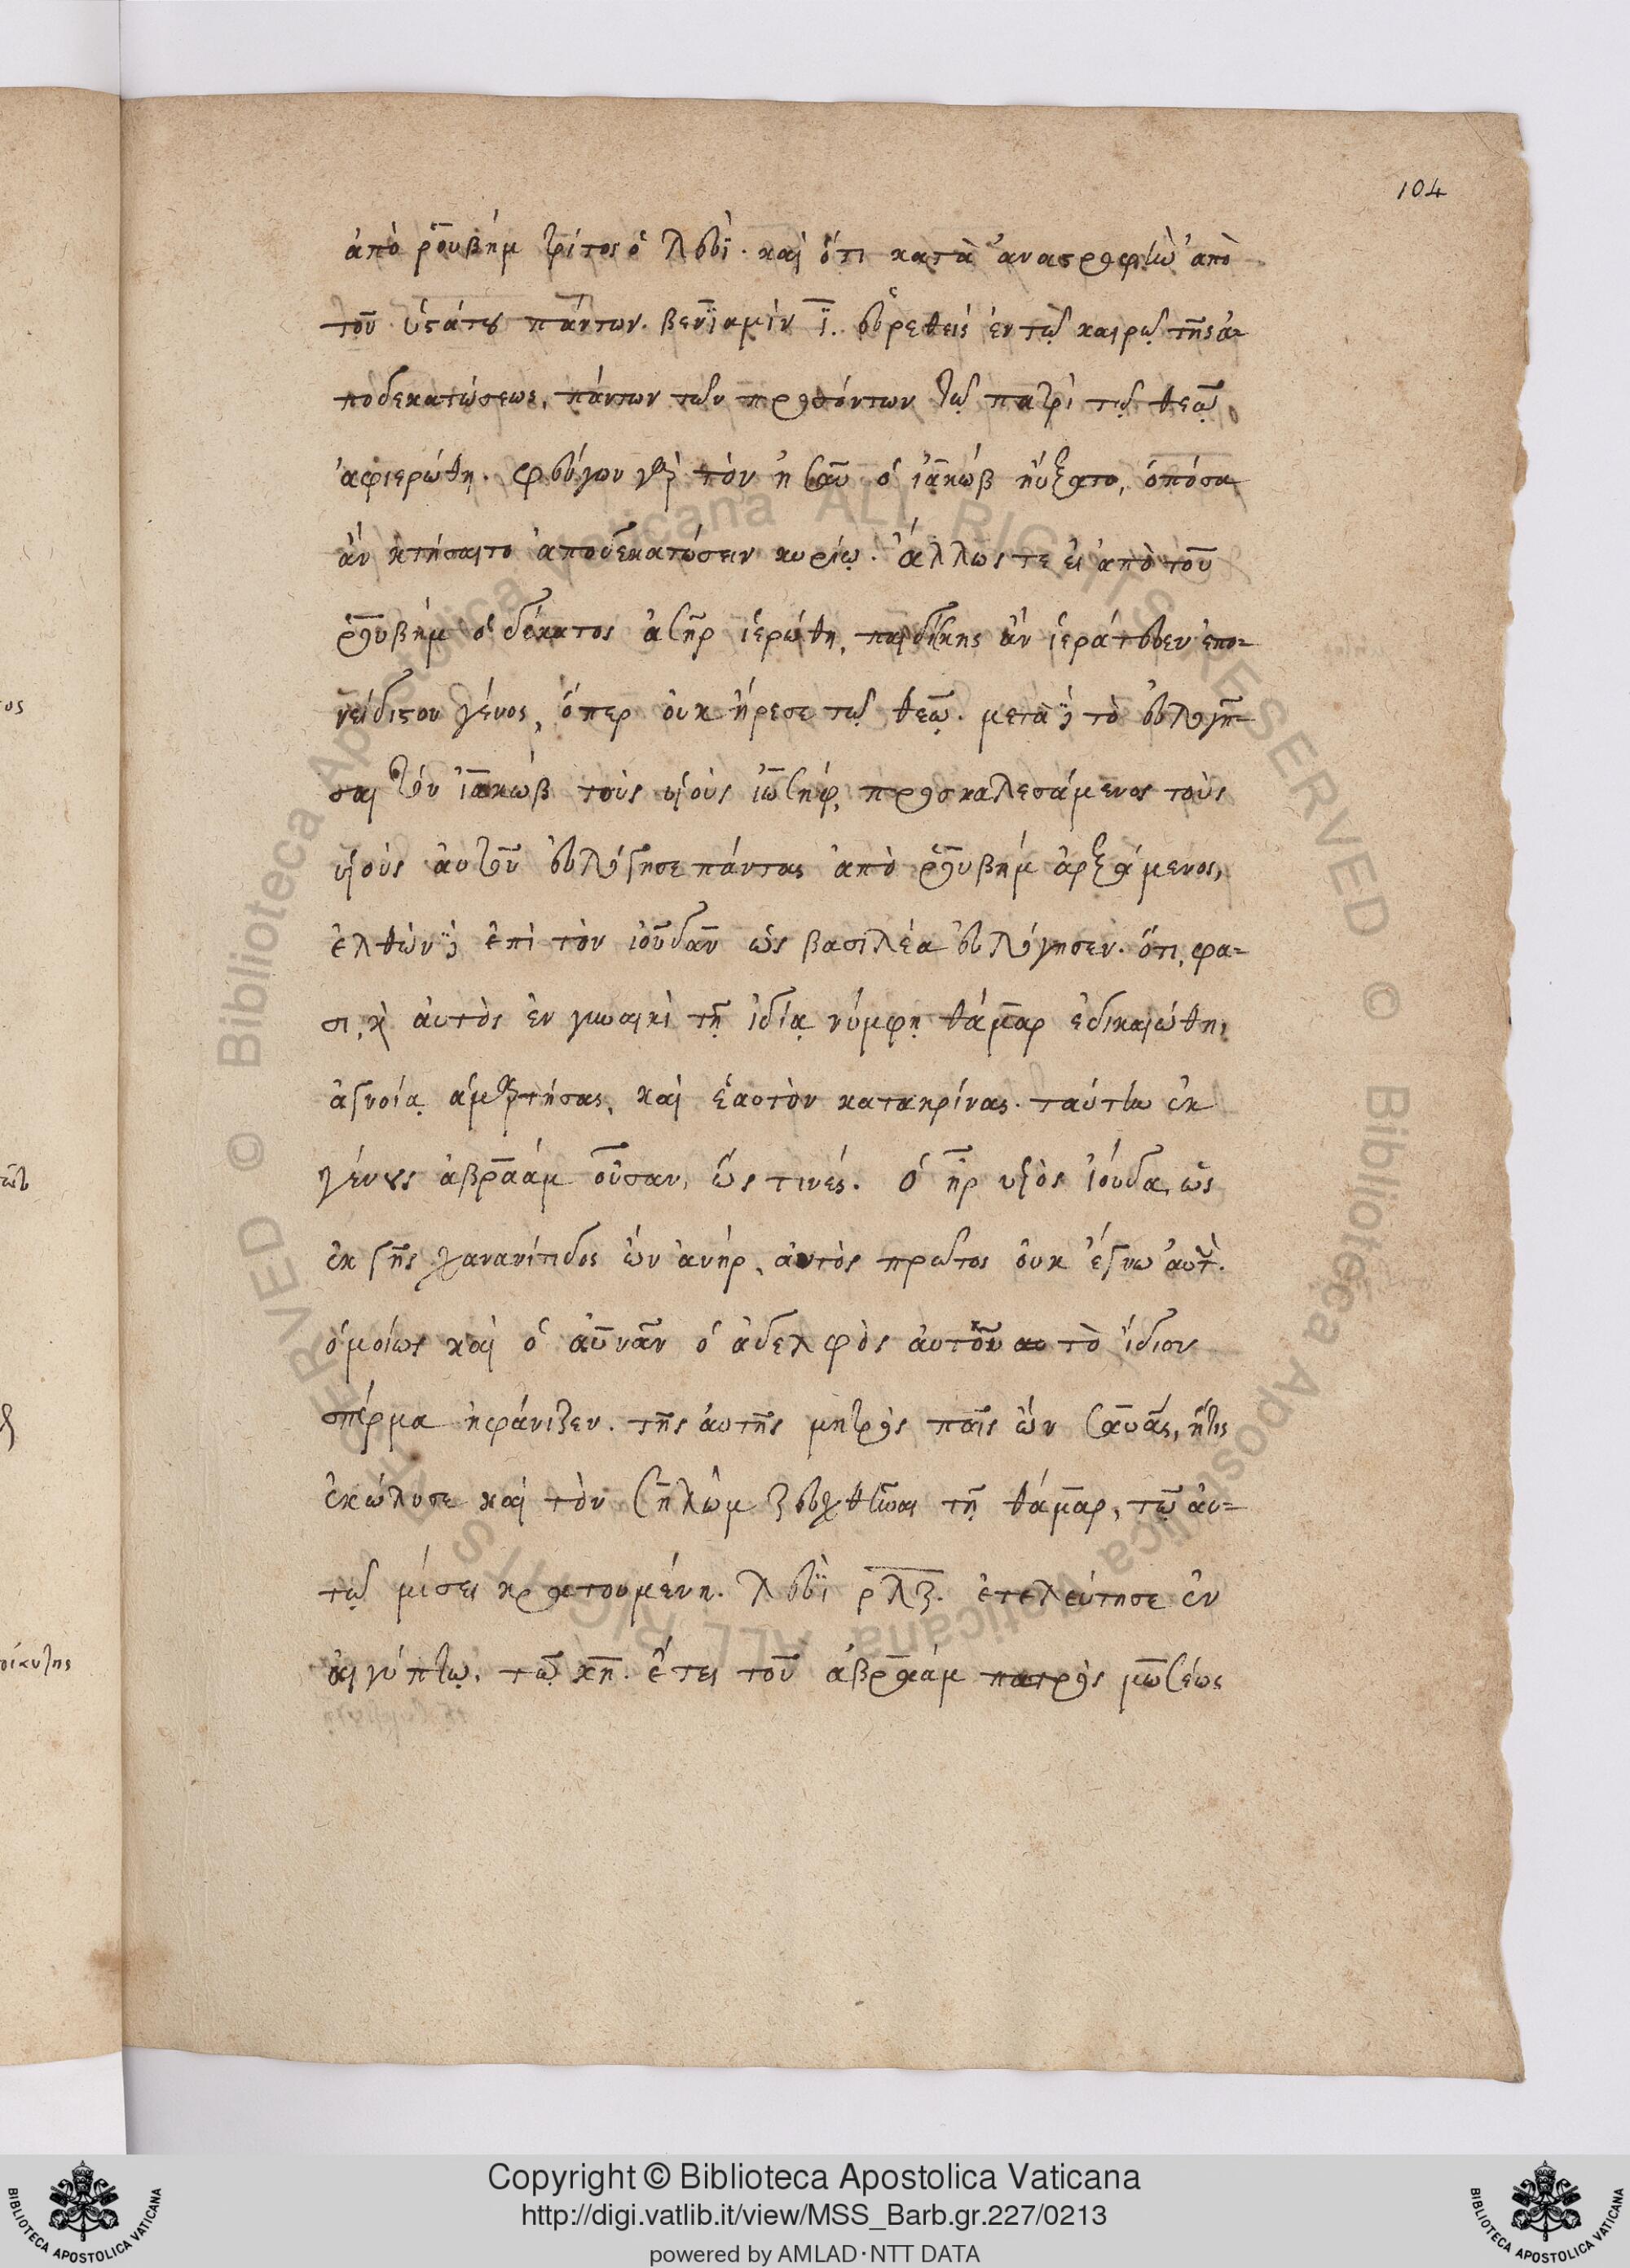 104
ἀπὸ ῥουβὴμ τρίτος ὁ λευὶ. καὶ ὅτι κατὰ ἀναστροφὴν ἀπὸ
τοῦ ὑστάτου πάντων. βενϊαμὶν ϊ. εὑρεθεὶς ἐν τῷ καιρῷ τῆς ἀ-
ποδεκατώσεως, πάντων τῶν προσόντων τῷ πατρὶ τῷ θεῷ,
ἀφιερώθη. φεύγων γὰρ τὸν ἠσαῦ ὁ ἰακώβ ηὔξατο, ὁπόσα
ἂν κτήσαιτο ἀποδεκατώσειν κυρίῳ. ἄλλως τε εἰ ἀπὸ τοῦ
ῥουβήμ ὁ δέκατος ἀσὴρ ἱερώθη, παιδίσκης ἂν ἱεράτευεν ἐπο-
νείδιστον γένος, ὅπερ οὐκ ἤρεσε τῷ θεῷ. μετὰ δὲ τὸ εὐλογῆ-
σαι τὸν ἰακώβ τοὺς υἱοὺς ἰωσήφ, προσκαλεσάμενος τοὺς
υἱοὺς αὐτοῦ εὐλόγησε πάντας ἀπὸ ῥουβήμ ἀρξάμενος,
ἐλθὼν δὲ ἐπὶ τὸν ἰούδαν ὡς βασιλέα εὐλόγησεν. ὅτι, φα-
σι, κ αὐτὸς ἐν γυναικὶ τῇ ἰδίᾳ νύμφῃ θάμαρ ἐδικαιώθη,
ἀγνοίᾳ ἁμαρτήσας, καὶ ἑαυτὸν κατακρίνας. ταύτην ἐκ
γένους ἀβραάμ οὖσαν, ὥς τινές. ὁ ἢρ υἱὸς ἰούδα, ὡς
ἐκ τῆς χανανίτιδος ὢν ἀνήρ, αὐτὸς πρῶτος οὐκ ἔγνω αὐτὴν.
ὁμοίως καὶ ὁ αὐνὰν ὁ ἀδελφὸς αὐτοῦ τὸ ἴδιον
σπέρμα ἠφάνιζεν. τῆς αὐτῆς μητρὸς παῖς ὢν σαυᾶς, ἥτις
ἐκώλυσε καὶ τὸν σηλὼμ ζευχθῆναι τῇ θάμαρ, τῷ αὐ-
τῷ μίσει κρατουμένη. λευὶ ρλζ. ἐτελεύτησε ἐν
αἰγύπτῳ, τῷ χη. ἔτει τοῦ ἀβραάμ πατρὸς μωσέως
Copyright © Biblioteca Apostolica Vaticana
http://digi.vatlib.it/view/MSS_Barb.gr.227/0213
powered by AMLAD·NTT DATA
BIBLIOTECA APOSTOLICA VATICANA
BIBLIOTECA APOSTOLICA VATICANA
© Biblioteca Apostolica Vaticana ALL RIGHTS RESERVED © Biblioteca Apostolica Vaticana ALL RIGHTS RESERVED